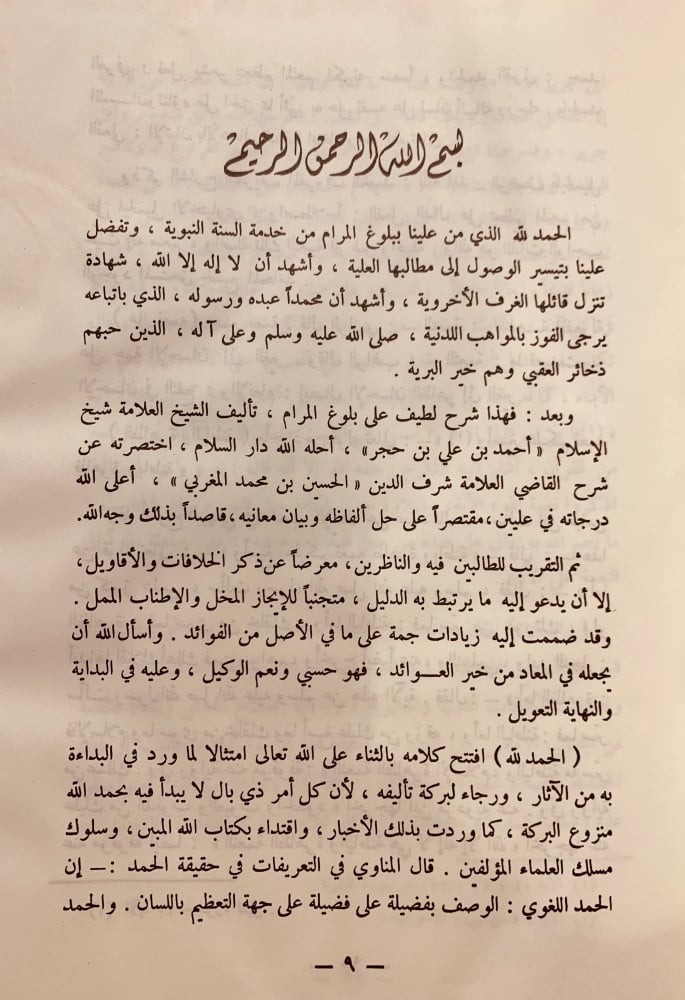 بسم الله الرحمن الرحيم
الحمد لله الذي من علينا ببلوغ المرام من خدمة السنة النبوية ، وتفضل
علينا بتيسير الوصول إلى مطالبها العلية ، وأشهد أن لا إله إلا الله ، شهادة
تنزل قائلها الغرف الأخروية ، وأشهد أن محمداً عبده ورسوله ، الذي باتباعه
يرجى الفوز بالمواهب اللدنية ، صلى الله عليه وسلم وعلى آله ، الذين حبهم
ذخائر العقبي وهم خير البرية .
وبعد : فهذا شرح لطيف على بلوغ المرام ، تأليف الشيخ العلامة شيخ
الإسلام «أحمد بن علي بن حجر» ، أحله الله دار السلام ، اختصرته عن
شرح القاضي العلامة شرف الدين «الحسين بن محمد المغربي» ، أعلى الله
درجاته في عليين ، مقتصراً على حل ألفاظه وبيان معانيه ، قاصداً بذلك وجه الله.
ثم التقريب للطالبين فيه والناظرين، معرضاً عن ذكر الخلافات والأقاويل ،
إلا أن يدعو إليه ما يرتبط به الدليل ، متجنباً للإيجاز المخل والإطناب الممل .
وقد ضممت إليه زيادات جمة على ما في الأصل من الفوائد . وأسأل الله أن
يجعله في المعاد من خير العـــوائد ، فهو حسبي ونعم الوكيل ، وعليه في البداية
والنهاية التعويل .
( الحمد لله ) افتتح كلامه بالثناء على الله تعالى امتثالا لما ورد في البداءة
به من الآثار ، ورجاء لبركة تأليفه ، لأن كل أمر ذي بال لا يبدأ فيه بحمد الله
منزوع البركة ، كما وردت بذلك الأخبار ، واقتداء بكتاب الله المبين، وسلوك
مسلك العلماء المؤلفين . قال المناوي في التعريفات في حقيقة الحمد :— إن
الحمد اللغوي : الوصف بفضيلة على فضيلة على جهة التعظيم باللسان . والحمد
— ٩ —